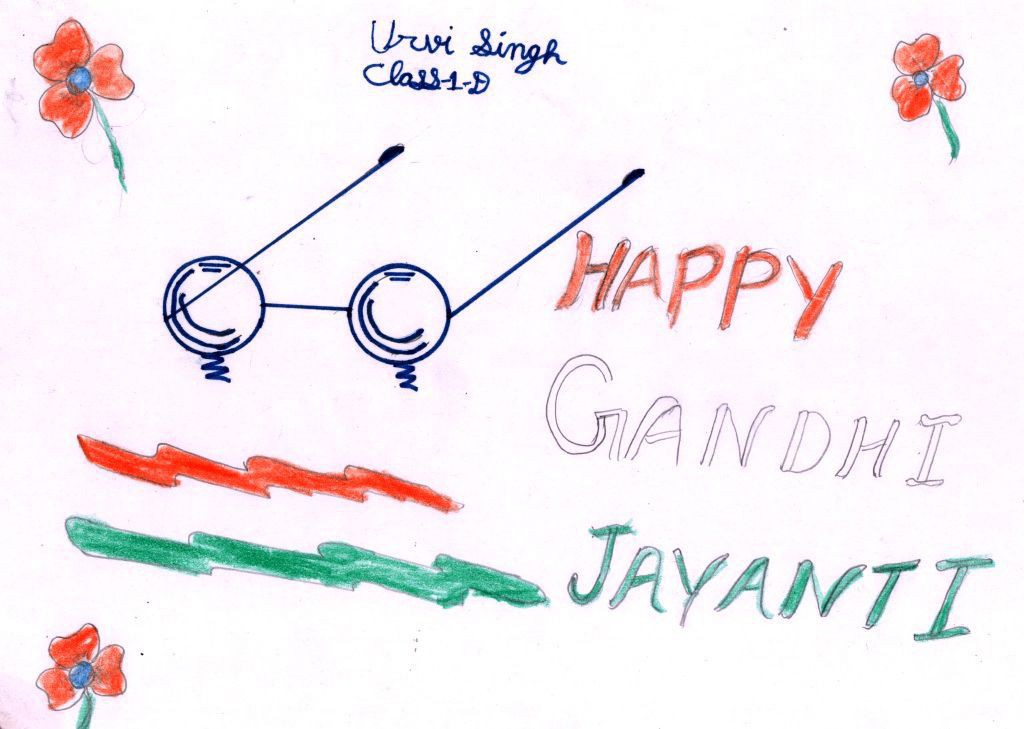 Urvi Singh
Class-1-D
HAPPY
GANDHI
JAYANTI